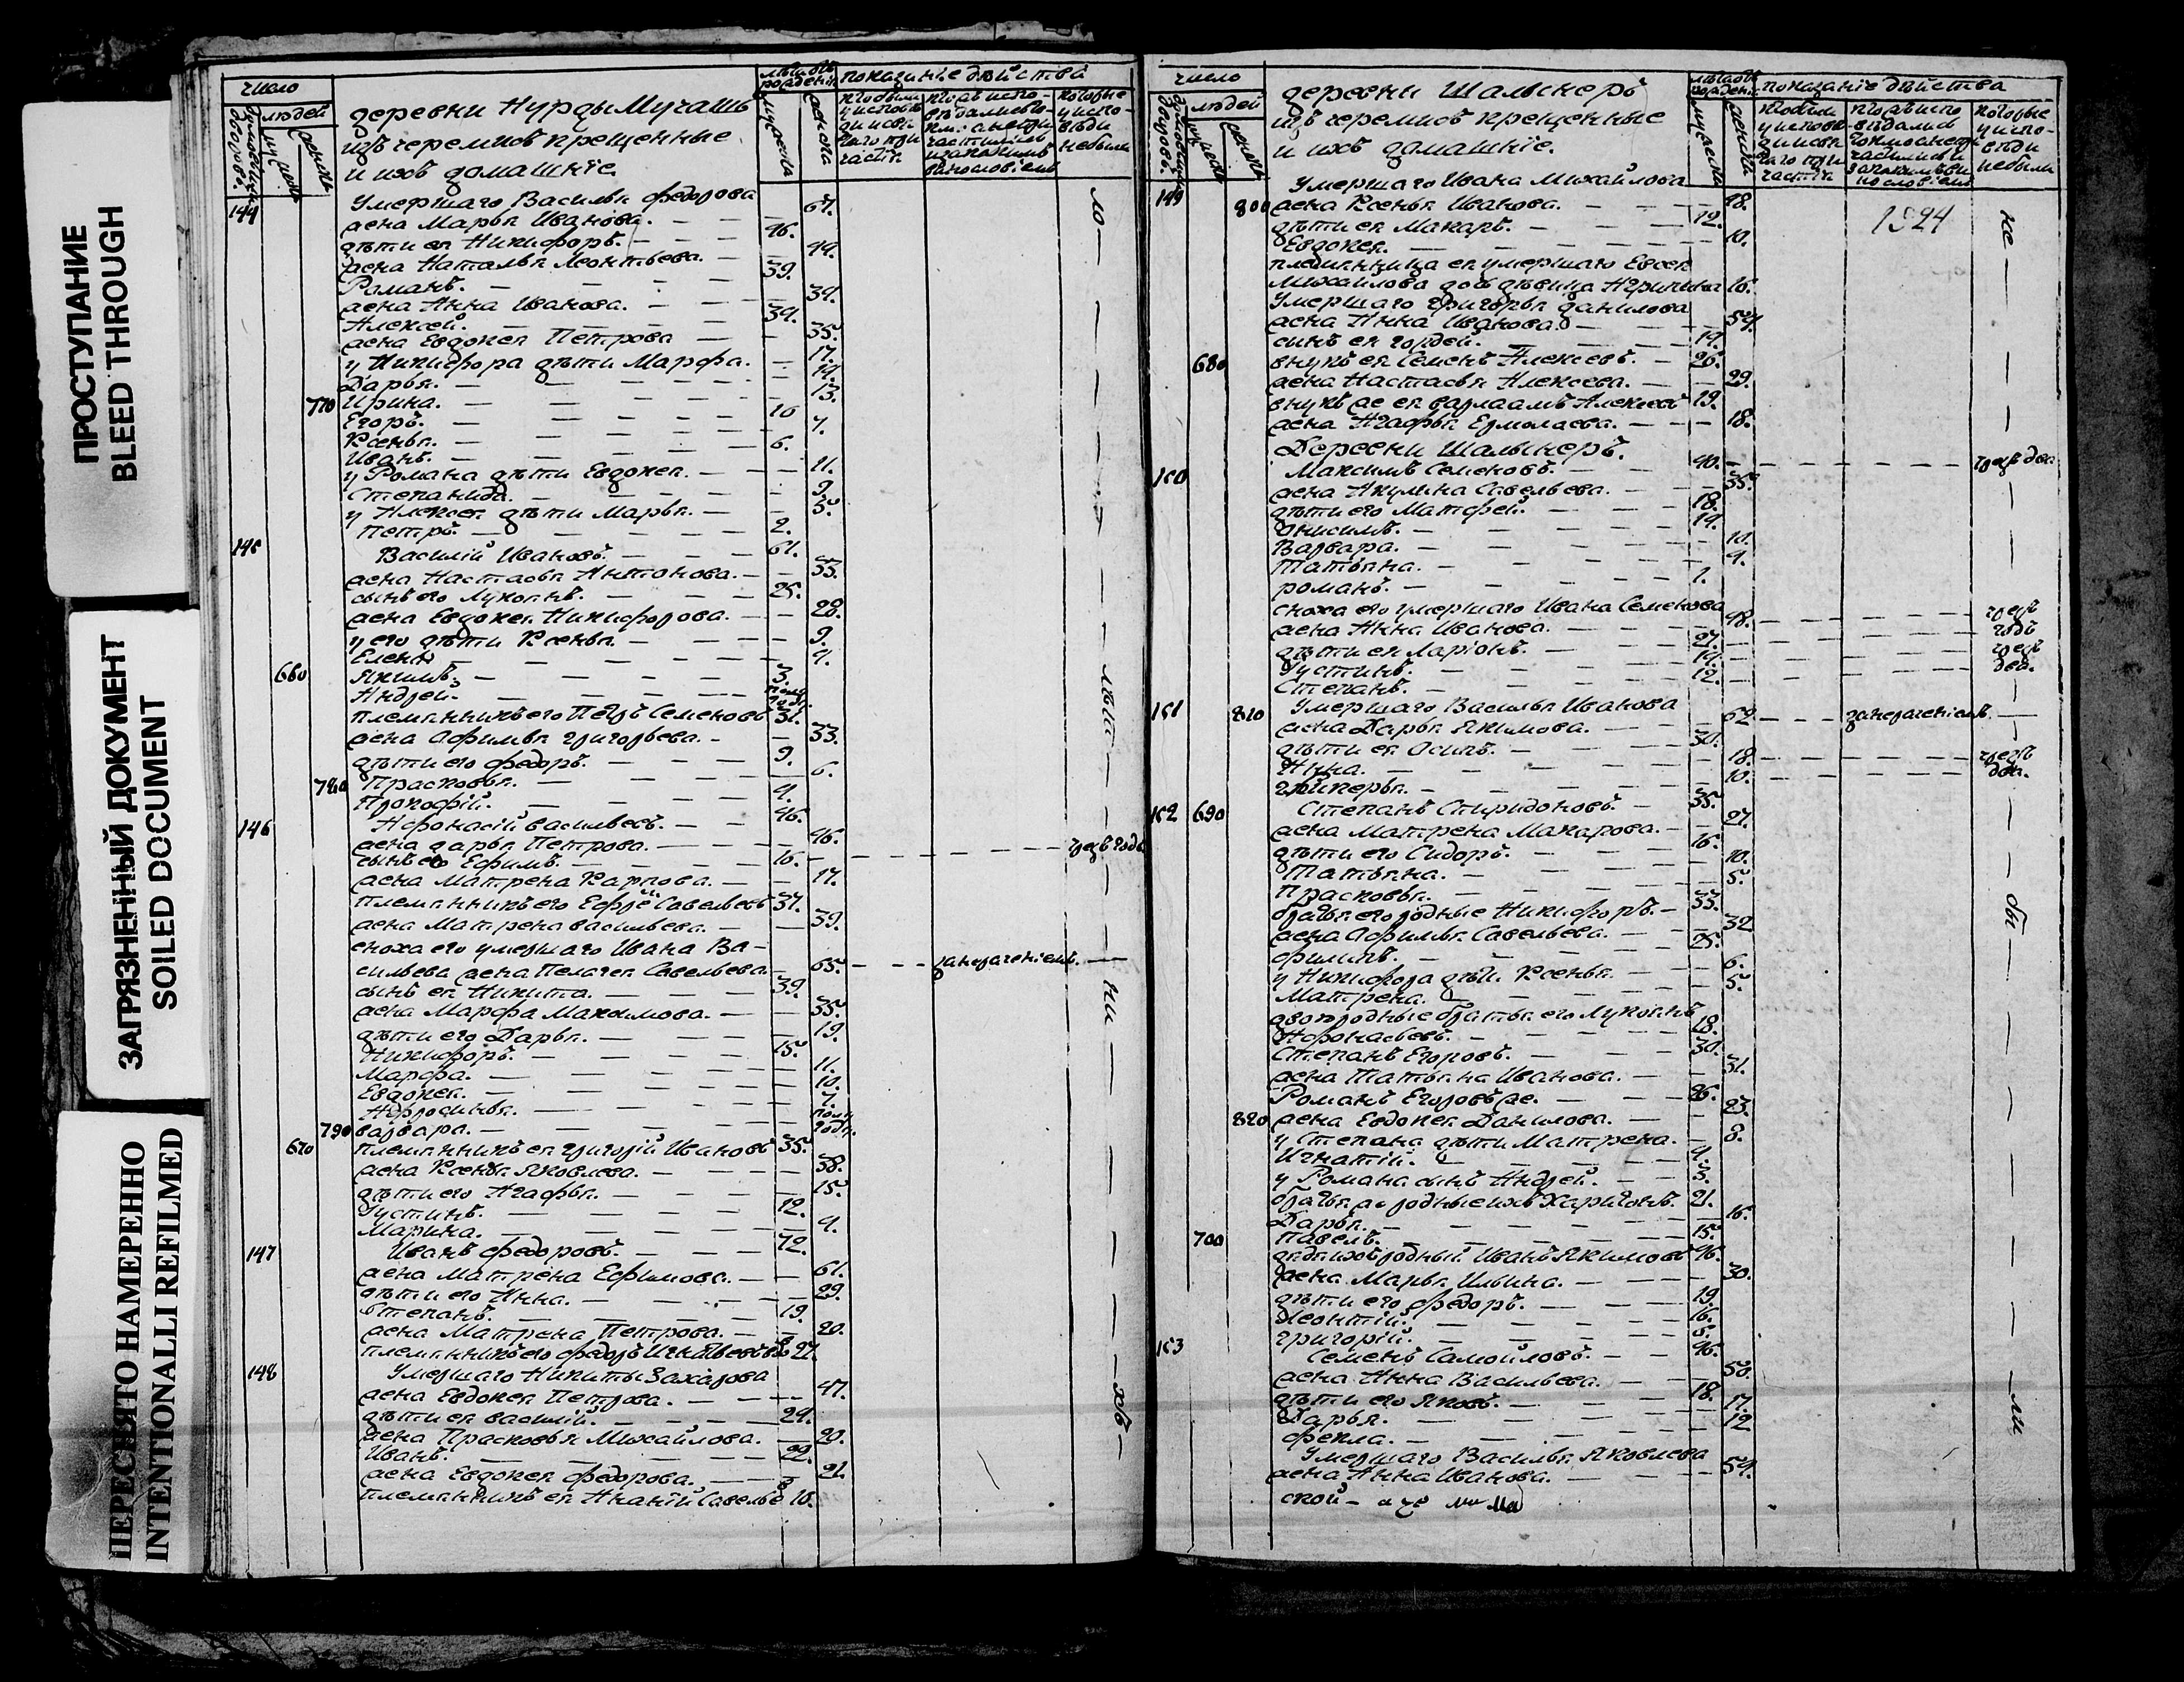 ПРОСТУПАНИЕ
BLEED THROUGH
ЗАГРЯЗНЕННЫЙ ДОКУМЕНТ
SOILED DOCUMENT
ПЕРЕСНЯТО НАМЕРЕННО
INTENTIONALLI REFILMED
число
людей
деревни Нурды Мучашъ
изъ черемисъ крещенные
и ихъ домашніе
показаніе дѣйства
144
Умершаго Василья Федорова
жена Марья Иванова. 67.
дѣти ея Никифоръ. 46.
жена Наталья Леонтьева. 44.
Романъ. 39.
жена Анна Иванова. 34.
Алексей. 34.
жена Евдокея Петрова 35.
у Никифора дѣти Марфа. 17.
Дарья. 14.
770 Ирина. 13.
Егоръ. 10
Ксенья. 7.
Иванъ. 6.
у Романа дѣти Евдокея. 11.
Степанида. 9.
у Алексея дѣти Марья. 5.
Петръ. 2.
145
Василій Ивановъ. 61.
жена Настасья Антонова. 53.
сынъ его Лукоянъ. 25.
жена Евдокея Никифорова. 28.
у его дѣти Ксенья. 9.
Елена 4.
660 Якимъ. 3.
Андрей. полу годъ.
племянникъ его Петръ Семеновъ 31.
жена Афимья Григорьева. 33.
дѣти его Федоръ. 9.
780 Прасковья. 6.
Прокофій. 4.
146
Афонасій Васильевъ. 46.
жена Дарья Петрова. 46.
сынъ его Ефимъ. 16.
жена Матрена Карпова. 17.
племянникъ его Ефре Савельевъ 37.
жена Матрена Васильева. 39.
сноха его умершаго Ивана Ва-
сильева жена Пелагея Савельева. 65. за нераченіемъ.
сынъ ея Никита. 39.
жена Марфа Максимова. 35.
дѣти его Дарья. 19.
Никифоръ. 15.
Марфа. 11.
Евдокея. 10.
Афросинья. 7.
790 Варвара. полу годъ.
670 племянникъ ея Григорій Ивановъ 35.
жена Ксенья Яковлева. 38.
дѣти его Агафья. 15.
Устинъ. 12.
Марина. 4.
147
Иванъ Федоровъ. 72.
жена Матрена Ефимова. 61.
дѣти его Анна. 29.
Степанъ. 19.
жена Матрена Петрова. 20.
племянникъ его Федоръ Игнатьевъ 27.
148
Умершаго Никиты Захарова
жена Евдокея Петрова. 47.
дѣти ея Василій. 24.
жена Прасковья Михайлова. 20.
Иванъ. 22.
жена Евдокея Федорова. 21.
племянникъ ея Ананій Савелье 16.
число
людей
деревни Шалынеръ
изъ черемисъ крещенные
и ихъ домашніе.
показаніе дѣйства
1824
149
Умершаго Ивана Михайлова
800 жена Ксенья Иванова. 48.
дѣти ея Макаръ. 12.
Евдокея. 10.
племянница ея умершаго Евсея
Михайлова дочь дѣвица Агрипина 16.
Умершаго Григорья Данилова
жена Анна Иванова. 54.
сынъ ея Гордей. 19.
680 внукъ ея Семенъ Алексеевъ. 26.
жена Настасья Алексеева. 29.
внукъ же ея Варлаамъ Алексеевъ 19.
жена Агафья Ермолаева. 18.
Деревни Шалынеръ.
150
Максимъ Семеновъ. 40.
жена Акулина Савельева. 35.
дѣти его Матфей. 18.
Онисимъ. 14.
Варвара. 10.
Татьяна. 4.
романъ. 1.
сноха его умершаго Ивана Семенова
жена Анна Иванова. 48.
дѣти ея Ларіонъ. 27.
Устинъ. 14.
Степанъ. 12.
151
Умершаго Василья Иванова
810 жена Дарья Якимова. 62. за нераченіемъ.
дѣти ея Осипъ. 30.
Анна. 18.
Гликерья. 10.
152 690
Степанъ Спиридоновъ. 35.
жена Матрена Макарова. 27.
дѣти его Сидоръ. 16.
Татьяна. 10.
Прасковья. 5.
братья его родные Никифоръ. 33.
жена Афимья Савельева. 32
Филипъ. 25.
у Никифора дѣти Ксенья. 6.
Матрена. 5.
двоюродные братья его Лукоянъ
Афонасьевъ. 18.
Степанъ Егоровъ. 30.
жена Татьяна Иванова. 31.
Романъ Егоровъ же. 26.
820 жена Евдокея Данилова. 23.
у Степана дѣти Матрена. 8.
Игнатій. 4.
у Романа сынъ Андрей. 3.
братья же родные ихъ Харитонъ. 21.
Дарья. 16.
700 Павелъ. 15.
дядя ихъ родный Иванъ Якимовъ 46.
жена Марья Ильина. 30.
дѣти его Федоръ. 19.
Леонтій. 16.
Григорій. 5.
153
Семенъ Самойловъ. 46.
жена Анна Васильева. 50.
дѣти его Яковъ. 18.
Дарья. 17.
Фекла. 12
Умершаго Василья Яковлева
жена Анна Иванова. 54.